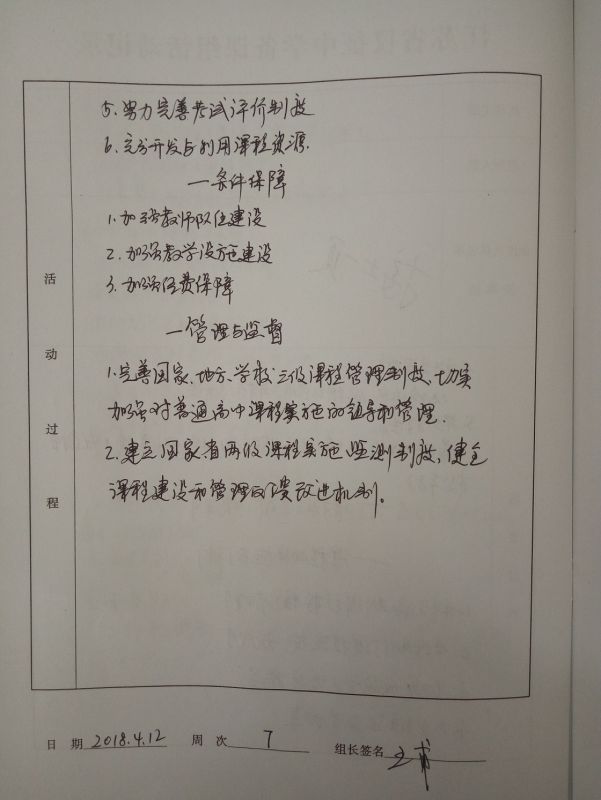 5. 努力完善考试评价制度
6. 充分开发与利用课程资源.
一条件保障
1. 加强教师队伍建设
2. 加强教学设施建设
3. 加强经费保障
一管理与监督
1. 完善国家、地方、学校三级课程管理制度, 切实
加强对普通高中课程实施的领导和管理.
2. 建立国家省两级课程实施监测制度, 健全
课程建设和管理反馈改进机制。
活
动
过
程
日 期 2018.4.12 周 次 7 组长签名